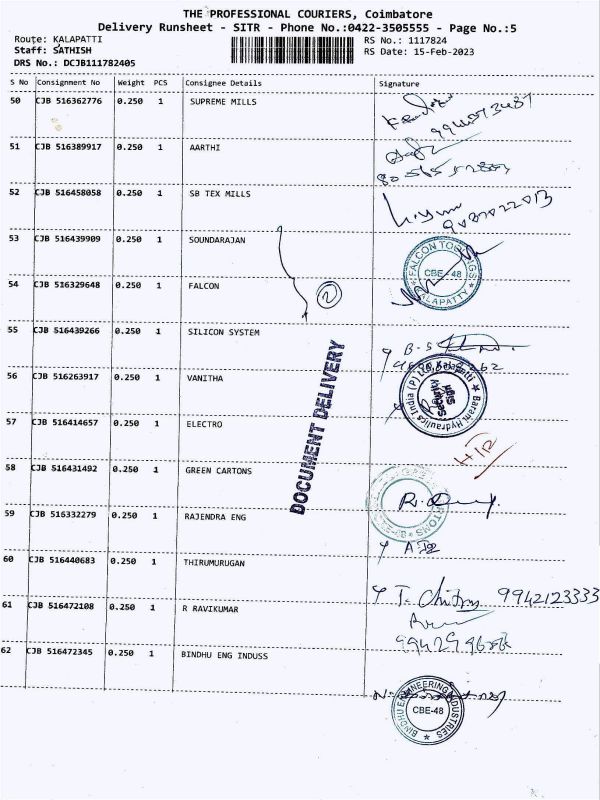 THE PROFESSIONAL COURIERS, Coimbatore
Delivery Runsheet - SITR - Phone No.:0422-3505555 - Page No.:5
Route: KALAPATTI
RS No.: 1117824
Staff: SATHISH
RS Date: 15-Feb-2023
DRS No.: DCJB111782405
S No Consignment No Weight PCS Consignee Details Signature
50 CJB 516362776 0.250 1 SUPREME MILLS
51 CJB 516389917 0.250 1 AARTHI
52 CJB 516458058 0.250 1 SB TEX MILLS
53 CJB 516439909 0.250 1 SOUNDARAJAN
FALCON TOOLINGS
CBE - 48
KALAPATTY
54 CJB 516329648 0.250 1 FALCON
2
55 CJB 516439266 0.250 1 SILICON SYSTEM
B-S
56 CJB 516263917 0.250 1 VANITHA
Barani Hydraulics India (P) Ltd, Kalapatti
57 CJB 516414657 0.250 1 ELECTRO
DOCUMENT DELIVERY
58 CJB 516431492 0.250 1 GREEN CARTONS
59 CJB 516332279 0.250 1 RAJENDRA ENG
60 CJB 516440683 0.250 1 THIRUMURUGAN
T. Chitra 9942123333
61 CJB 516472108 0.250 1 R RAVIKUMAR
62 CJB 516472345 0.250 1 BINDHU ENG INDUSS
BINDHU ENGINEERING INDUSTRIES
CBE-48